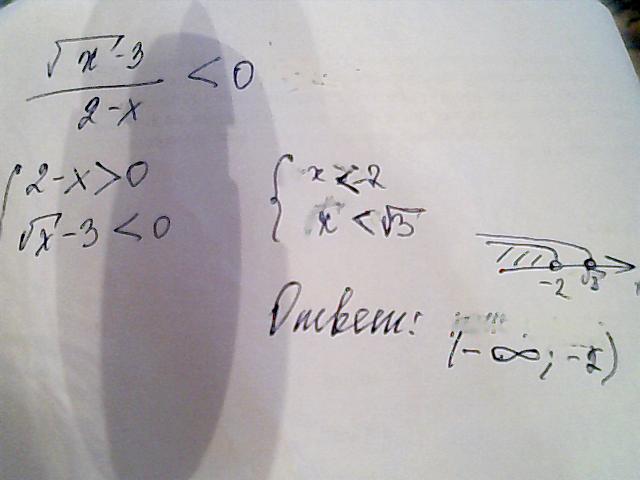 (√x - 3)/(2-x) < 0
{ 2-x>0
√x-3<0
{ x<-2
x<√3
-2 √3
Ответ:
(-∞; -2)